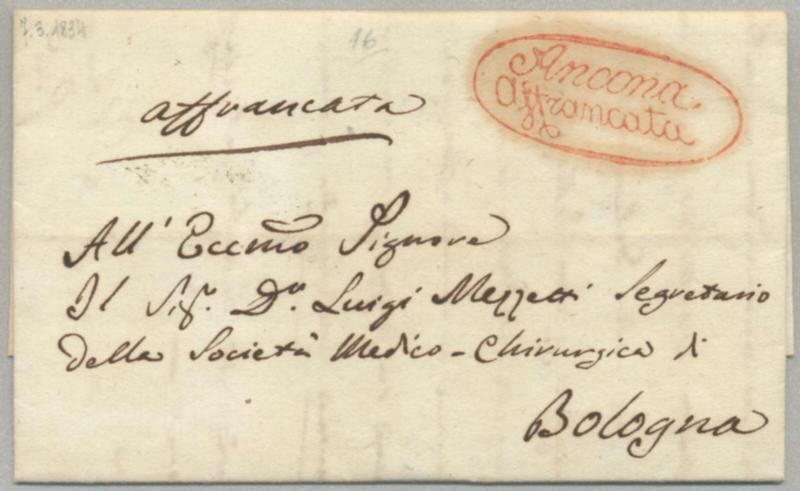 7.3.1834
16
affrancata
Ancona
Affrancata
All' Eccmo Signore
Il Sigr. Dr. Luigi Mezzetti Segretario
della Società Medico-Chirurgica di
Bologna